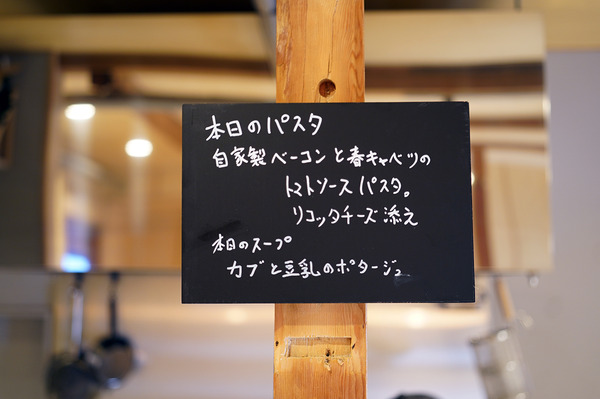 本日のパスタ
自家製ベーコンと春キャベツの
トマトソースパスタ。
リコッタチーズ添え
本日のスープ
カブと豆乳のポタージュ